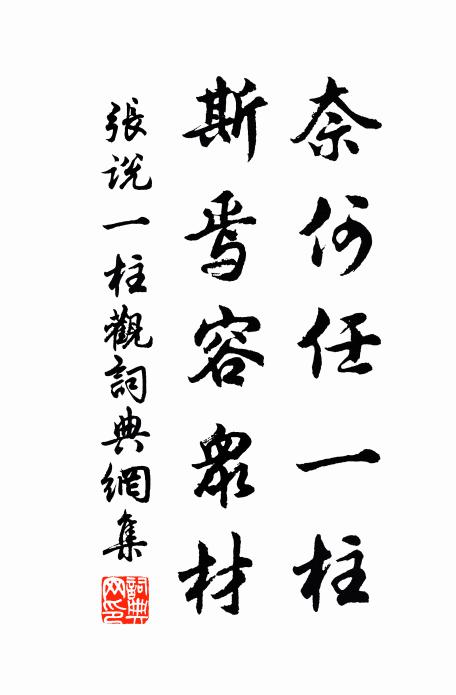 奈何任一柱
斯焉容眾材
張說一柱觀詞典網集
詞典網印